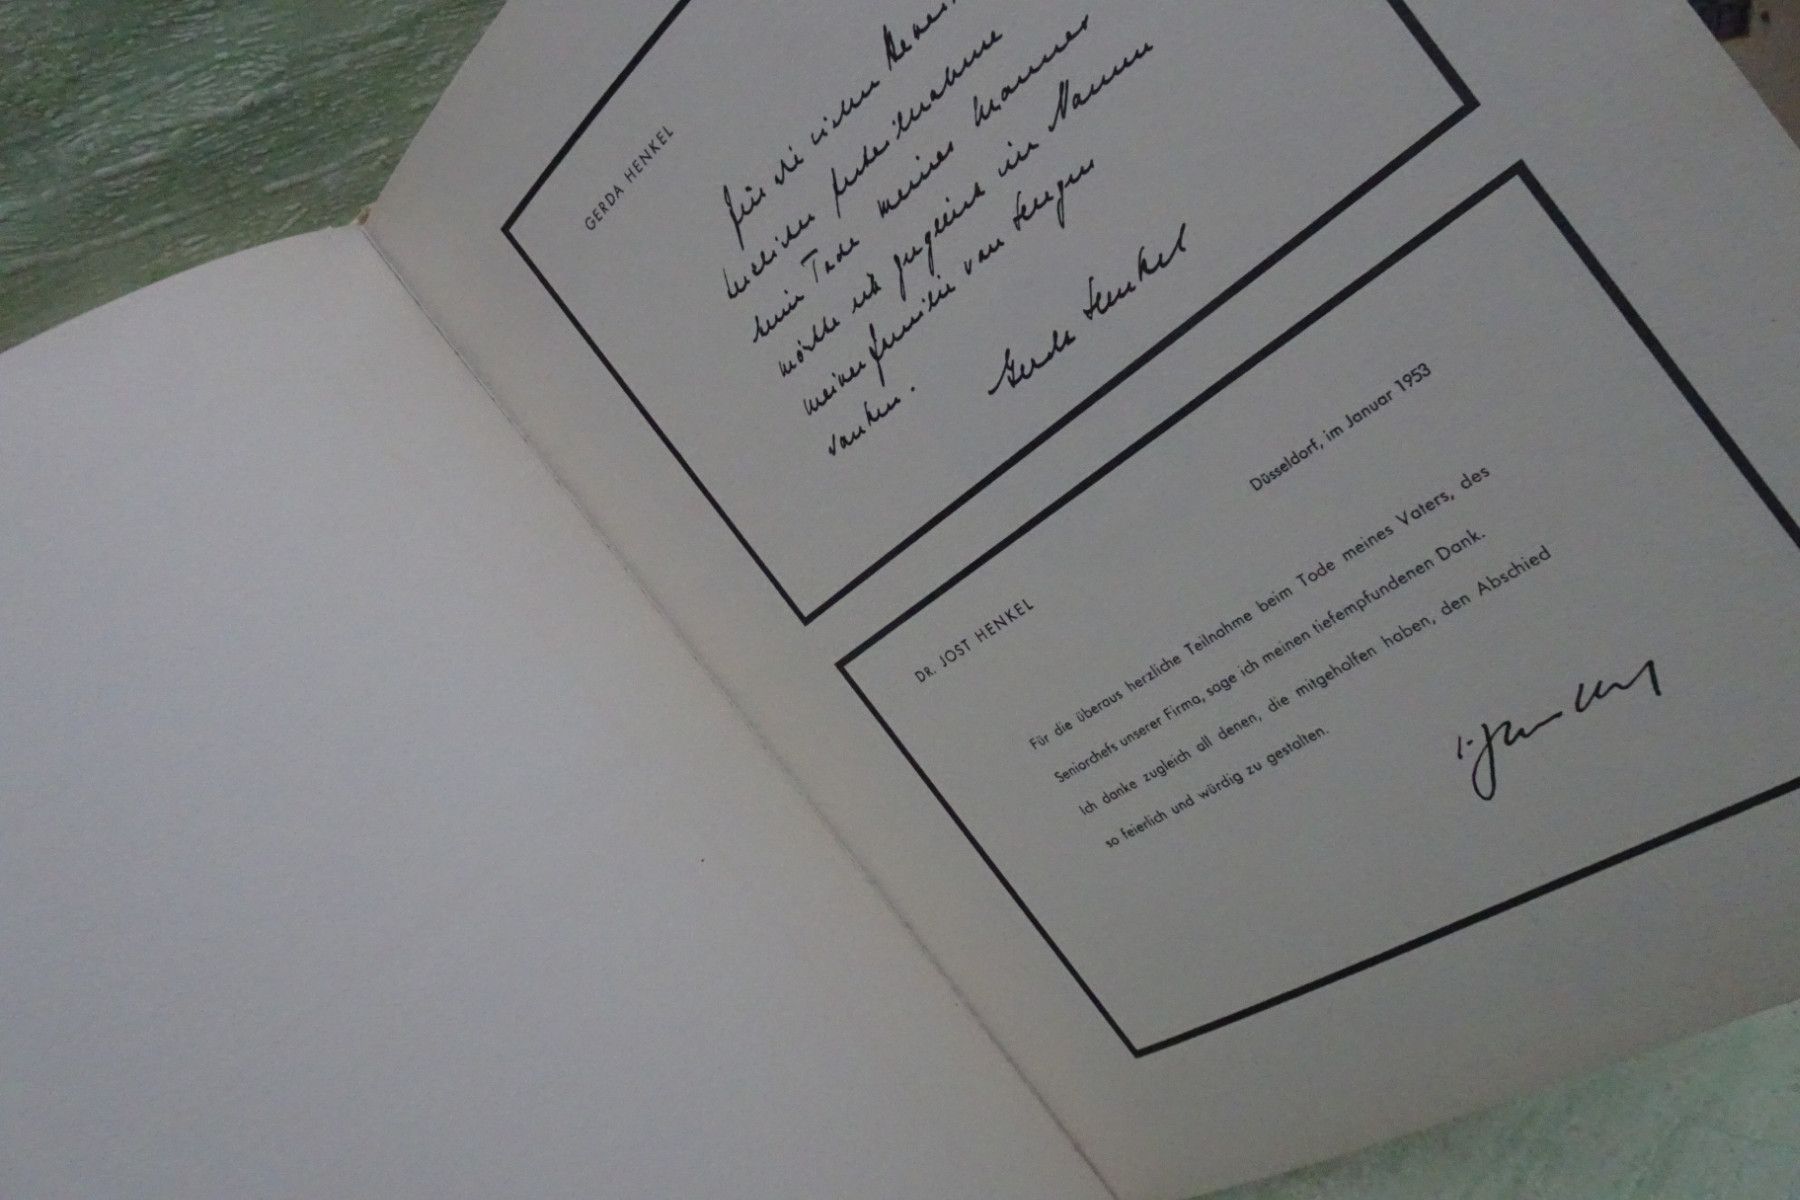 GERDA HENKEL
für die vielen Bewei
herzlicher Anteilnahme
beim Tode meines Mannes
möchte ich zugleich im Namen
meiner Familie von Herzen
danken.
Gerda Henkel
DR. JOST HENKEL
Düsseldorf, im Januar 1953
Für die überaus herzliche Teilnahme beim Tode meines Vaters, des
Seniorchefs unserer Firma, sage ich meinen tiefempfundenen Dank.
Ich danke zugleich all denen, die mitgeholfen haben, den Abschied
so feierlich und würdig zu gestalten.